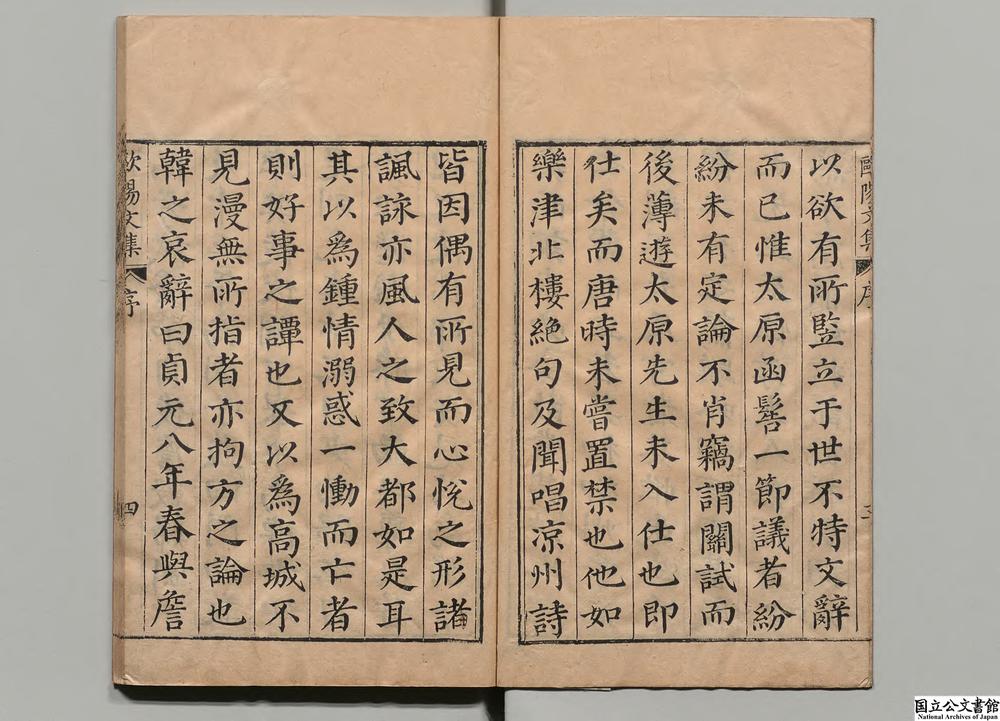 以欲有所竪立于世不特文辭
而已惟太原函髻一節議者紛
紛未有定論不肖竊謂關試而
後薄遊太原先生未入仕也即
仕矣而唐時未嘗置禁也他如
樂津北樓絶句及聞唱凉州詩
皆因偶有所見而心悅之形諸
諷詠亦風人之致大都如是耳
其以為鍾情溺惑一慟而亡者
則好事之譚也又以為高城不
見漫無所指者亦拘方之論也
韓之哀辭曰貞元八年春與詹
歐陽文集
序
三
歐陽文集
序
四
国立公文書館
National Archives of Japan